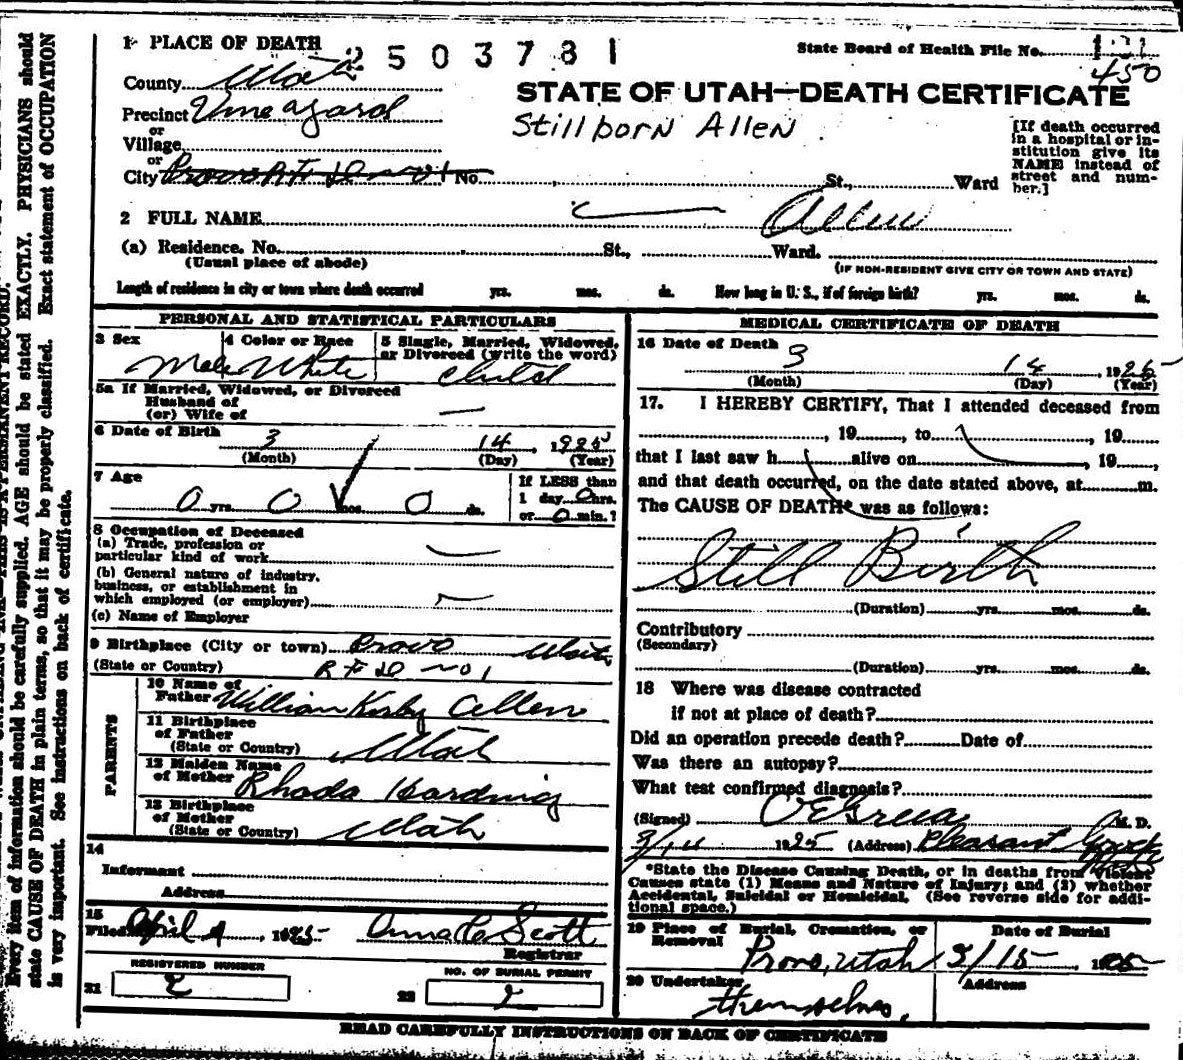 1 PLACE OF DEATH
2503781
State Board of Health File No.
450
County Utah
STATE OF UTAH—DEATH CERTIFICATE
Precinct Vineyard
Stillborn Allen
or
Village
or
City Provo R F D no 1 No. St., Ward
[If death occurred
in a hospital or in-
stitution give its
NAME instead of
street and num-
ber.]
2 FULL NAME Allen
(a) Residence. No. St., Ward.
(Usual place of abode)
(IF NON-RESIDENT GIVE CITY OR TOWN AND STATE)
Length of residence in city or town where death occurred yrs. mos. ds. How long in U. S., if of foreign birth? yrs. mos. ds.
PERSONAL AND STATISTICAL PARTICULARS
3 Sex
Male
4 Color or Race
White
5 Single, Married, Widowed,
or Divorced (write the word)
5a If Married, Widowed, or Divorced
Husband of
(or) Wife of —
6 Date of Birth
3 14, 1925
(Month) (Day) (Year)
7 Age
0 yrs. 0 mos. 0 ds.
If LESS than
1 day 0 hrs.
or 0 min.?
8 Occupation of Deceased
(a) Trade, profession or
particular kind of work —
(b) General nature of industry,
business, or establishment in
which employed (or employer) —
(c) Name of Employer
9 Birthplace (City or town) Provo Utah
(State or Country) R F D no 1
PARENTS
10 Name of
Father William Kirby Allen
11 Birthplace
of Father
(State or Country) Utah
12 Maiden Name
of Mother Rhoda Harding
13 Birthplace
of Mother
(State or Country) Utah
14
Informant
Address
15
Filed April 4, 1925 Anna C. Scott
Registrar
REGISTERED NUMBER
21 2
NO. OF BURIAL PERMIT
22 2
MEDICAL CERTIFICATE OF DEATH
16 Date of Death
3 14, 1925
(Month) (Day) (Year)
17. I HEREBY CERTIFY, That I attended deceased from
, 19 , to , 19
that I last saw h alive on , 19 ,
and that death occurred, on the date stated above, at m.
The CAUSE OF DEATH* was as follows:
Still Birth
(Duration) yrs. mos. ds.
Contributory
(Secondary)
(Duration) yrs. mos. ds.
18 Where was disease contracted
if not at place of death?
Did an operation precede death? Date of
Was there an autopsy?
What test confirmed diagnosis?
(Signed) O E Grua M. D.
1925 (Address) Pleasant Grove
Utah
*State the Disease Causing Death, or in deaths from Violent
Causes state (1) Means and Nature of Injury; and (2) whether
Accidental, Suicidal or Homicidal. (See reverse side for addi-
tional space.)
19 Place of Burial, Cremation, or
Removal
Provo, Utah
Date of Burial
3/15, 1925
20 Undertaker
themselves.
Address
READ CAREFULLY INSTRUCTIONS ON BACK OF CERTIFICATE
Every item of information should be carefully supplied. AGE should be stated EXACTLY. PHYSICIANS should
state CAUSE OF DEATH in plain terms, so that it may be properly classified. Exact statement of OCCUPATION
is very important. See instructions on back of certificate.